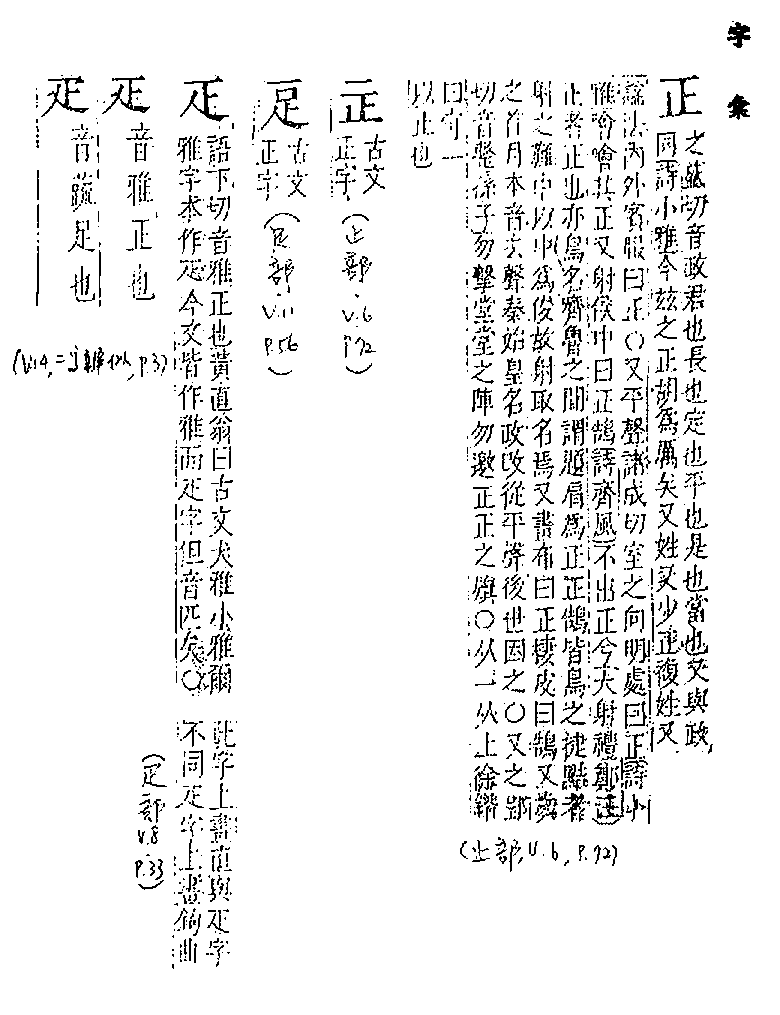 字彙
正
之盛切音政君也長也定也平也是也當也又與政
同詩小雅今兹之正胡為厲矣又姓又少正複姓又
諡法內外賓服曰正○又平聲諸成切室之向明處曰正詩小
雅噲噲其正又射侯中曰正鵠詩齊風不出正今大射禮鄭註
正者正也亦鳥名齊魯之間謂題肩為正正鵠皆鳥之捷黠者
射之難中以中為俊故射取名焉又畫布曰正棲皮曰鵠又歲
之首月本音去聲秦始皇名政改從平聲後世因之○又之郢
切音整孫子勿擊堂堂之陣勿邀正正之旗○从一从止徐鍇
曰守一
以止也
(止部, V.6, P.72)
古文
正字
(止部, V.6 P.72)
𤴓
古文
正字
(足部 V.11 P.56)
疋
語下切音雅正也黃直翁曰古文大雅小雅爾
雅字本作疋今文皆作雅而疋字但音匹矣○
此字上畫直與疋字
不同疋字上畫鉤曲
(疋部 V.8 P.33)
疋
音雅正也
疋
音疏足也
(V.14, P.3)